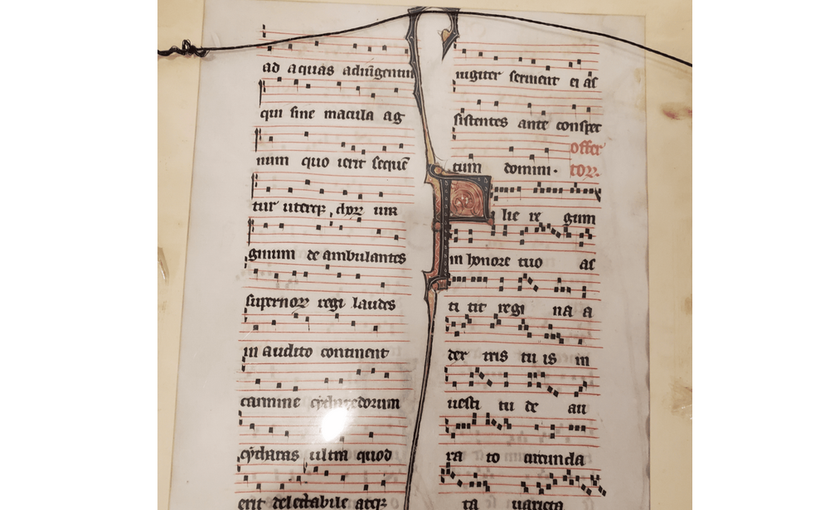 ad aquas adungentm
qui sine macula ag
num quo ierit seque
tur uterq, chor uir
ginum de ambulantes
supernor regi laudes
in audito continent
carmine cytharedorum
cytharas ultra quod
erit delectabile atq
iugiter seruient ei as
sistentes ante conspec
offer
tum domini. tor.
lie re gum
in honore tuo as
ti tit regi na a
dex tris tu is in
uesti tu de au
ra to circunda
ta uarieta